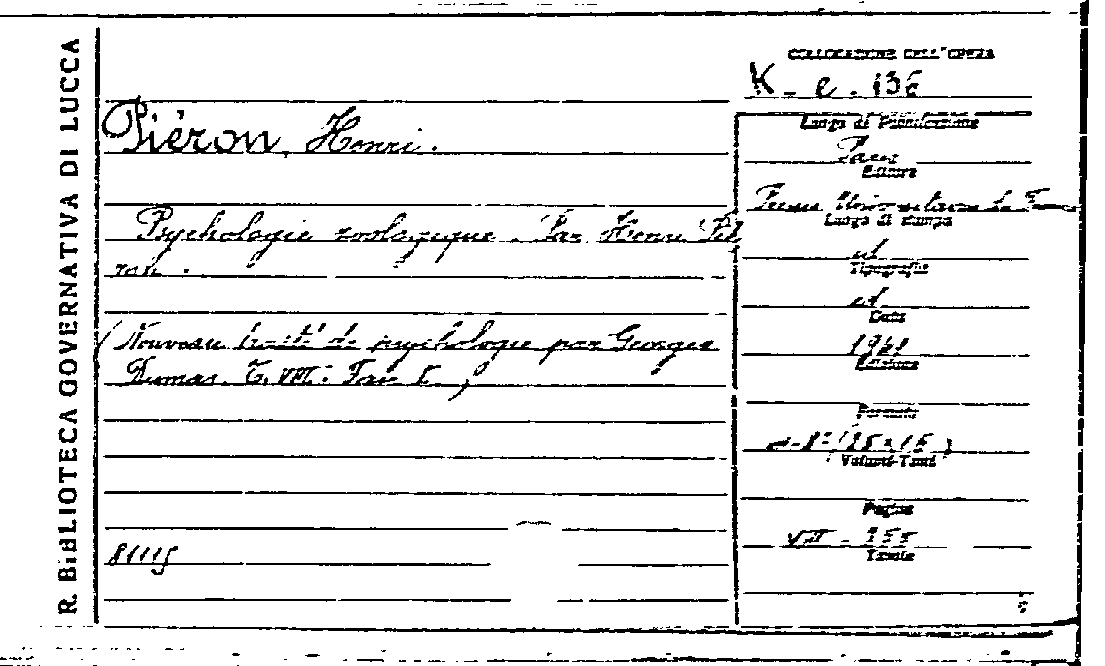 R. BiBLIOTECA GOVERNATIVA DI LUCCA
COLLOCAZIONE DELL'OPERA
K - e. 136
Piéron, Henri.
Psychologie zoologique. Par Henri Pié
ron.
(Nouveau traité de psychologie par Georges
Dumas. T. VIII: Fasc
81115
Luogo di Pubblicazione
Paris
Editore
Presses Universitaires de France
Luogo di stampa
id
Tipografia
id
Data
1941
Edizione
Formato
in-8° (25x16)
Volumi-Tomi
Pagine
VIII - 255
Tavole